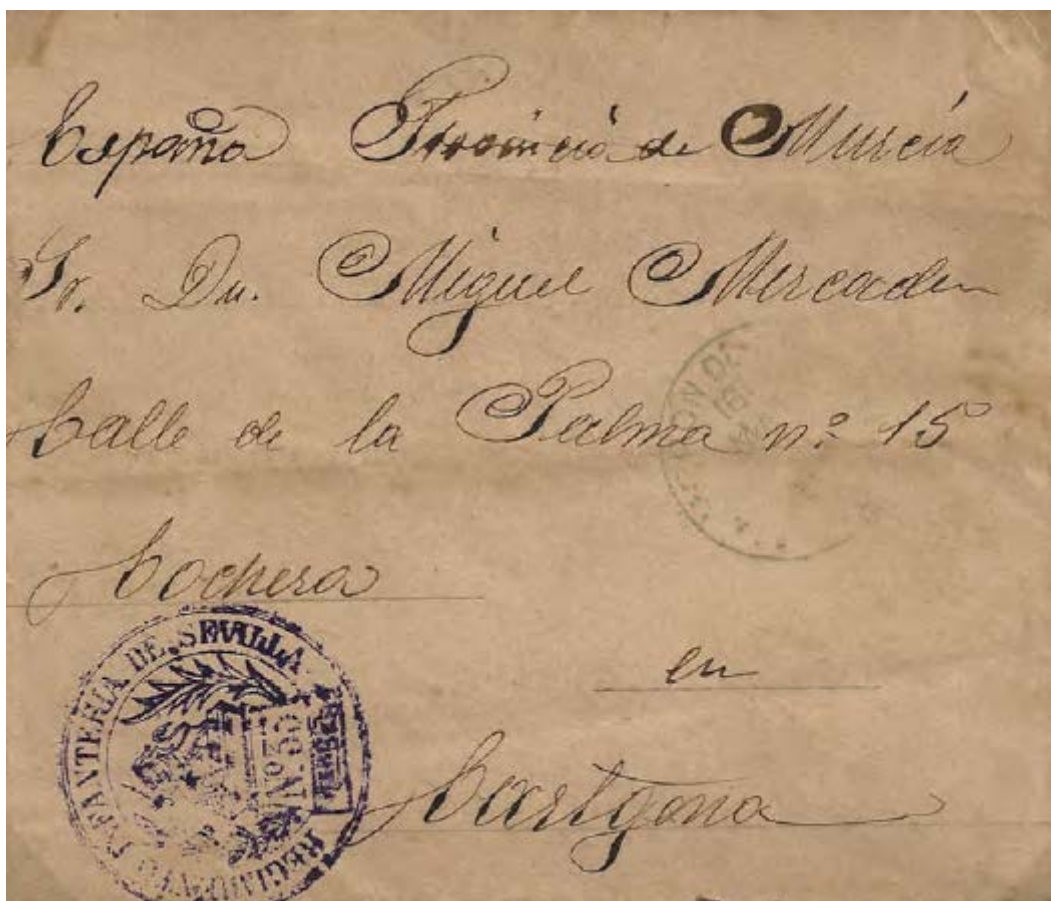 España Provincia de Murcia
Sr. Dn. Miguel Mercader
Calle de la Palma nº 15
Cochera
en
Cartgena
REGIMIENTO INFANTERIA DE SEVILLA
Nº